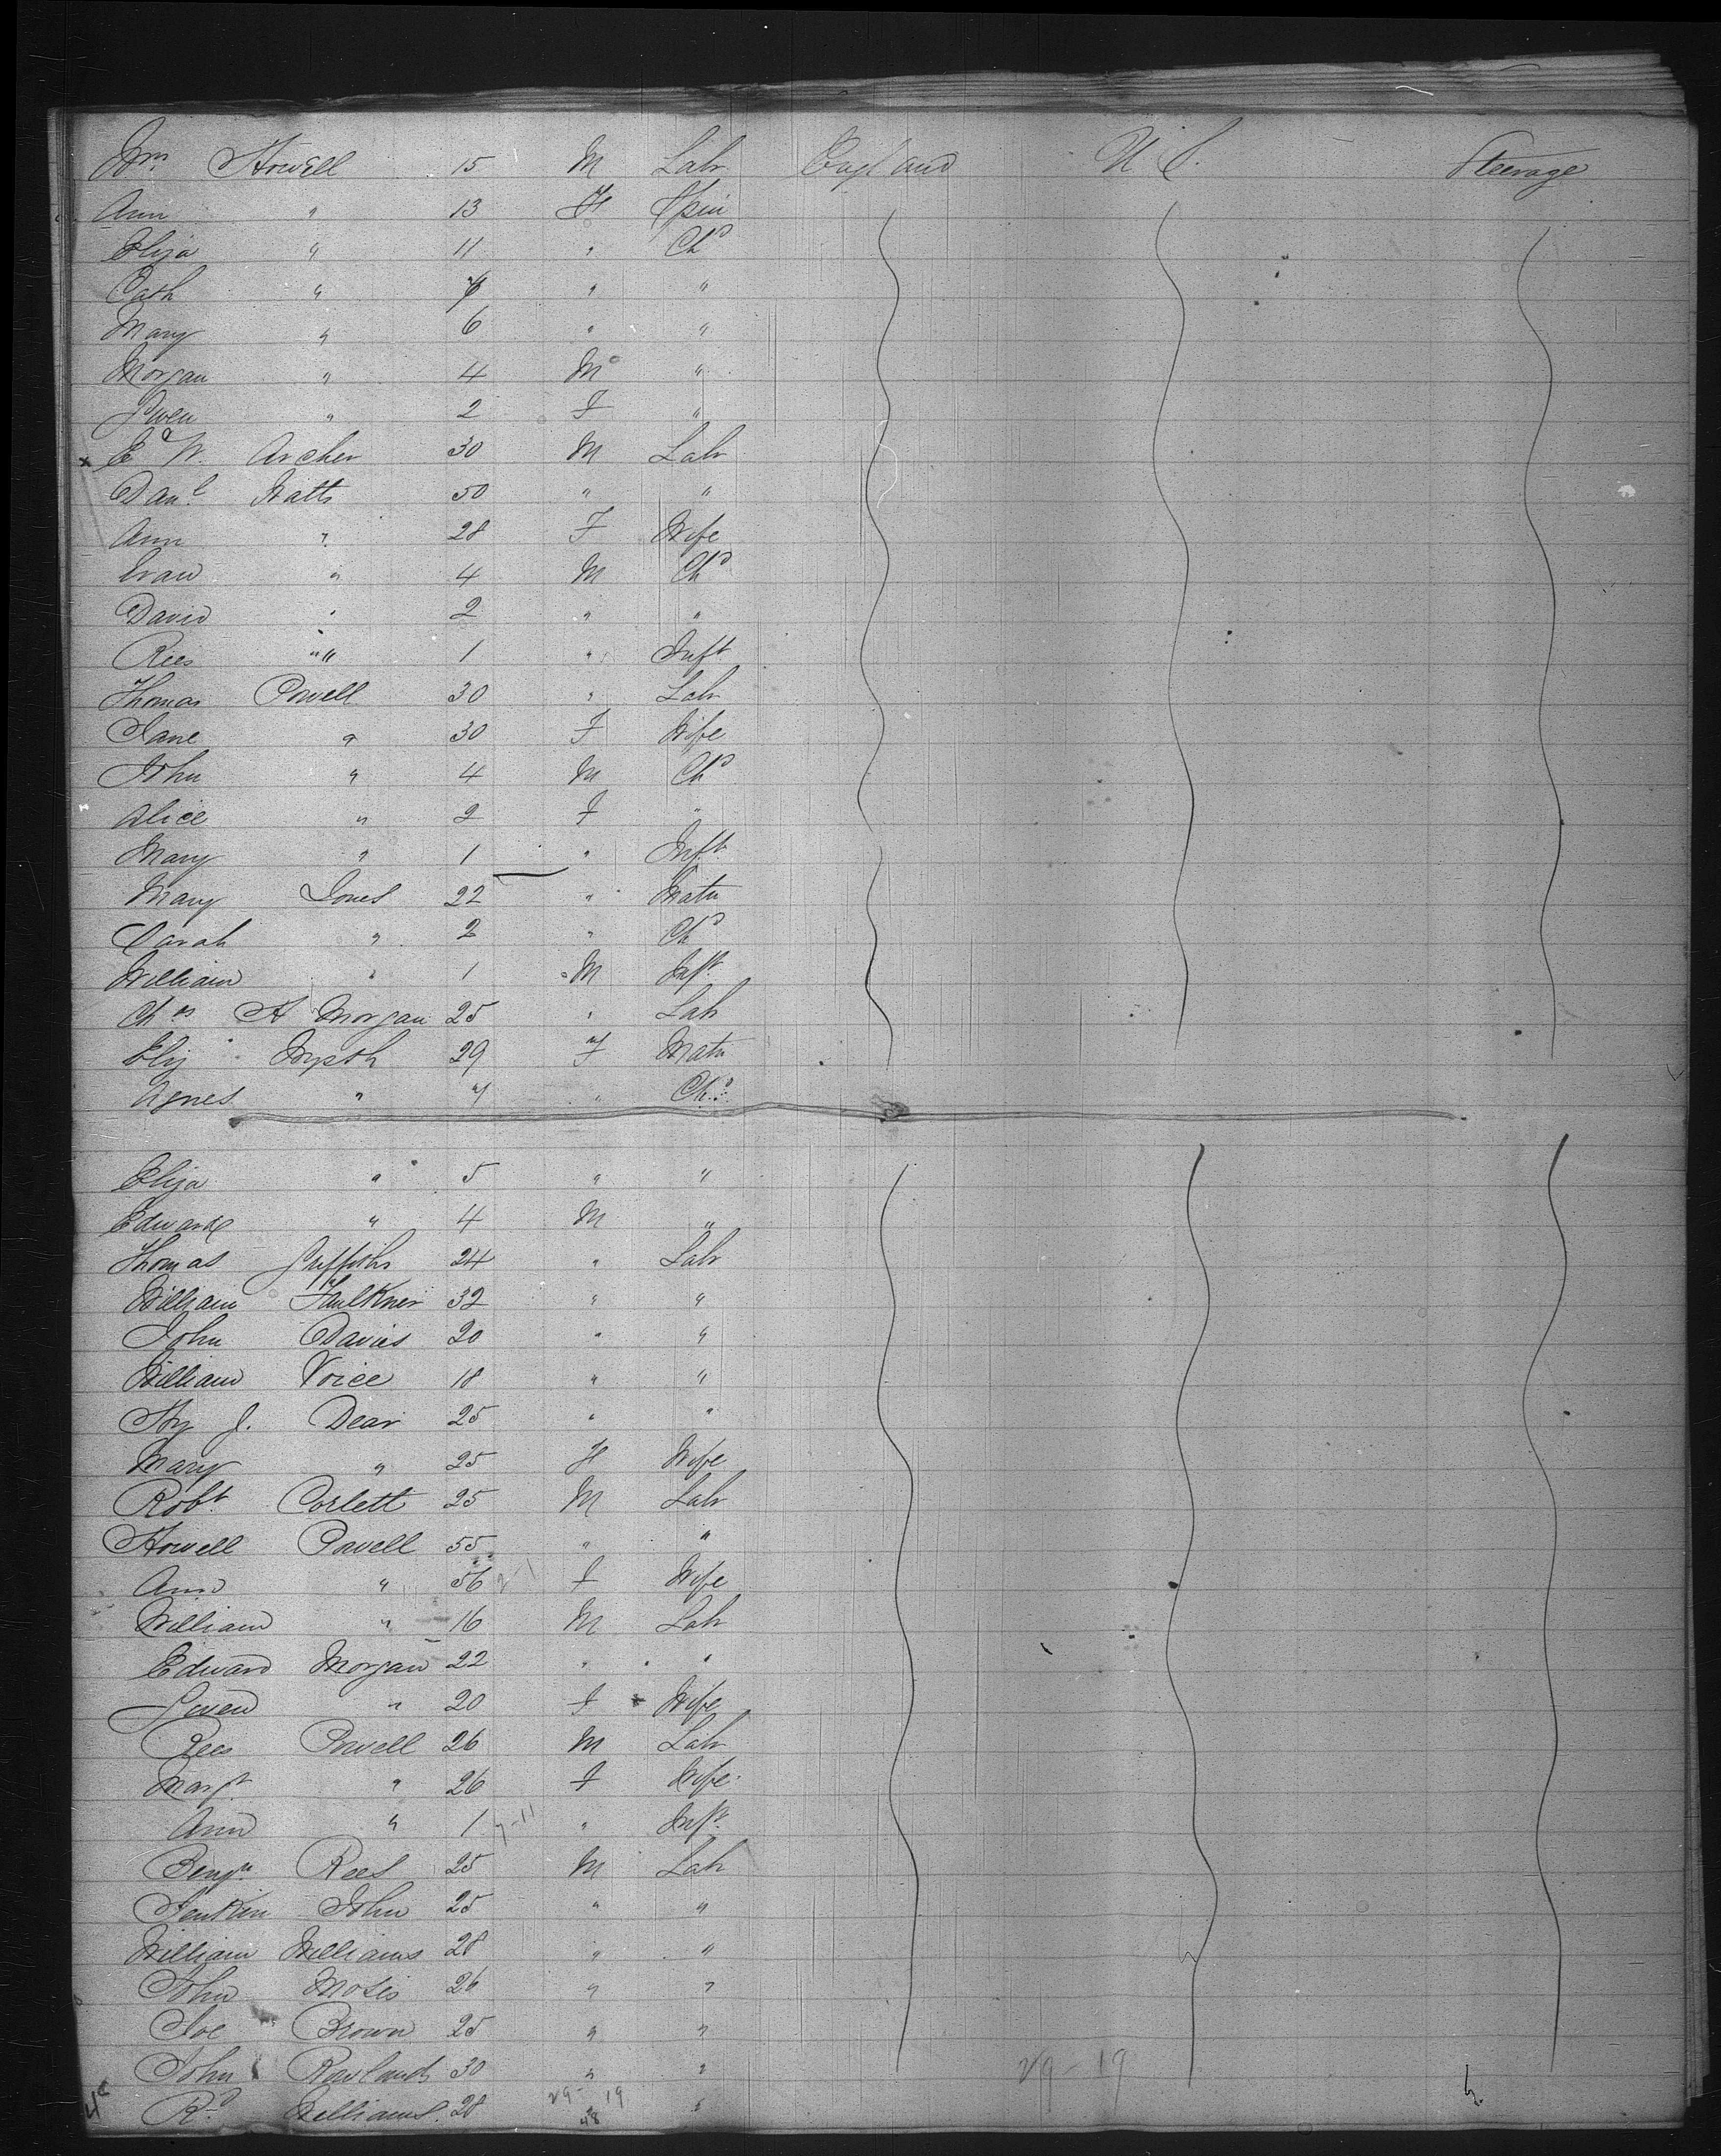 Wm Howell 15 M Labr England U S. Steerage
Ann " 13 F Spin
Eliza " 11 " Chd
Cath " " "
Mary " 6 " "
Morgan " 4 M "
Gwen " 2 F "
Ed W. Archer 30 M Labr
Danl Watts 50 " "
Ann " 28 F Wife
Evan " 4 M Chd
David " 2 " "
Rees " 1 " Inft
Thomas Powell 30 " Labr
Jane " 30 F Wife
John " 4 M Chd
Alice " 2 F "
Mary " 1 " Inft
Mary Jones 22 " Matn
Sarah " 2 " Chd
William " 1 M Inft
Chas H Morgan 25 " Labr
Eliz 29 F Matn
Agnes " 7 " Chd
Eliza " 5 " "
Edward " 4 M "
Thomas Griffiths 24 " Labr
William Faulkner 32 " "
John Davies 20 " "
William Voice 18 " "
Hy J. Dear 25 " "
Mary " 25 F Wife
Robt Corlett 25 M Labr
Howell Powell 55 " "
Ann " 56 F Wife
William " 16 M Labr
Edward Morgan 22 " "
Gwen " 20 F Wife
Rees Powell 26 M Labr
Margt " 26 F Wife
Ann " 1 " Inft
Benjn Rees 25 M Labr
Jenkin John 25 " "
William Williams 28 " "
John Moses 26 " "
Joe Brown 25 " "
John Rowlands 30 " " 29-19
Rd Williams 28 29-19 48 "